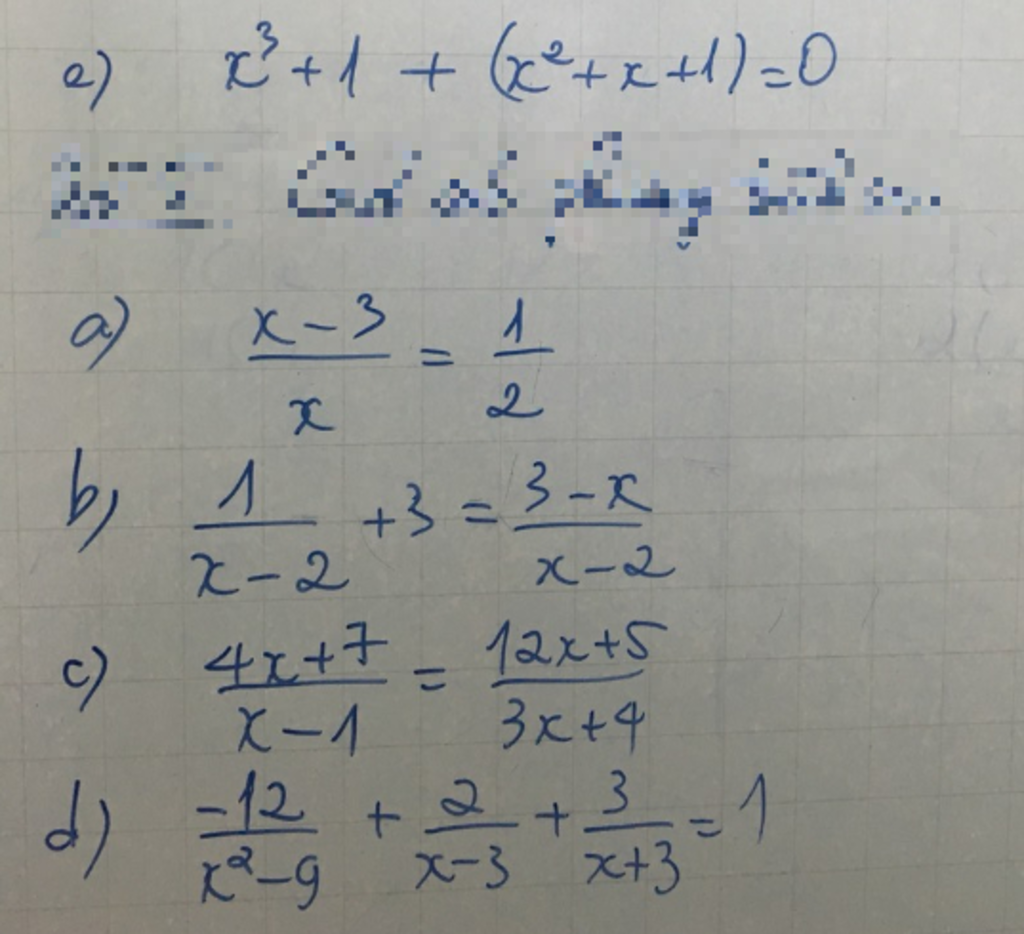 e) x³ + 1 + (x² + x + 1) = 0
a) \frac{x-3}{x} = \frac{1}{2}
b) \frac{1}{x-2} + 3 = \frac{3-x}{x-2}
c) \frac{4x+7}{x-1} = \frac{12x+5}{3x+4}
d) \frac{-12}{x²-9} + \frac{2}{x-3} + \frac{3}{x+3} = 1